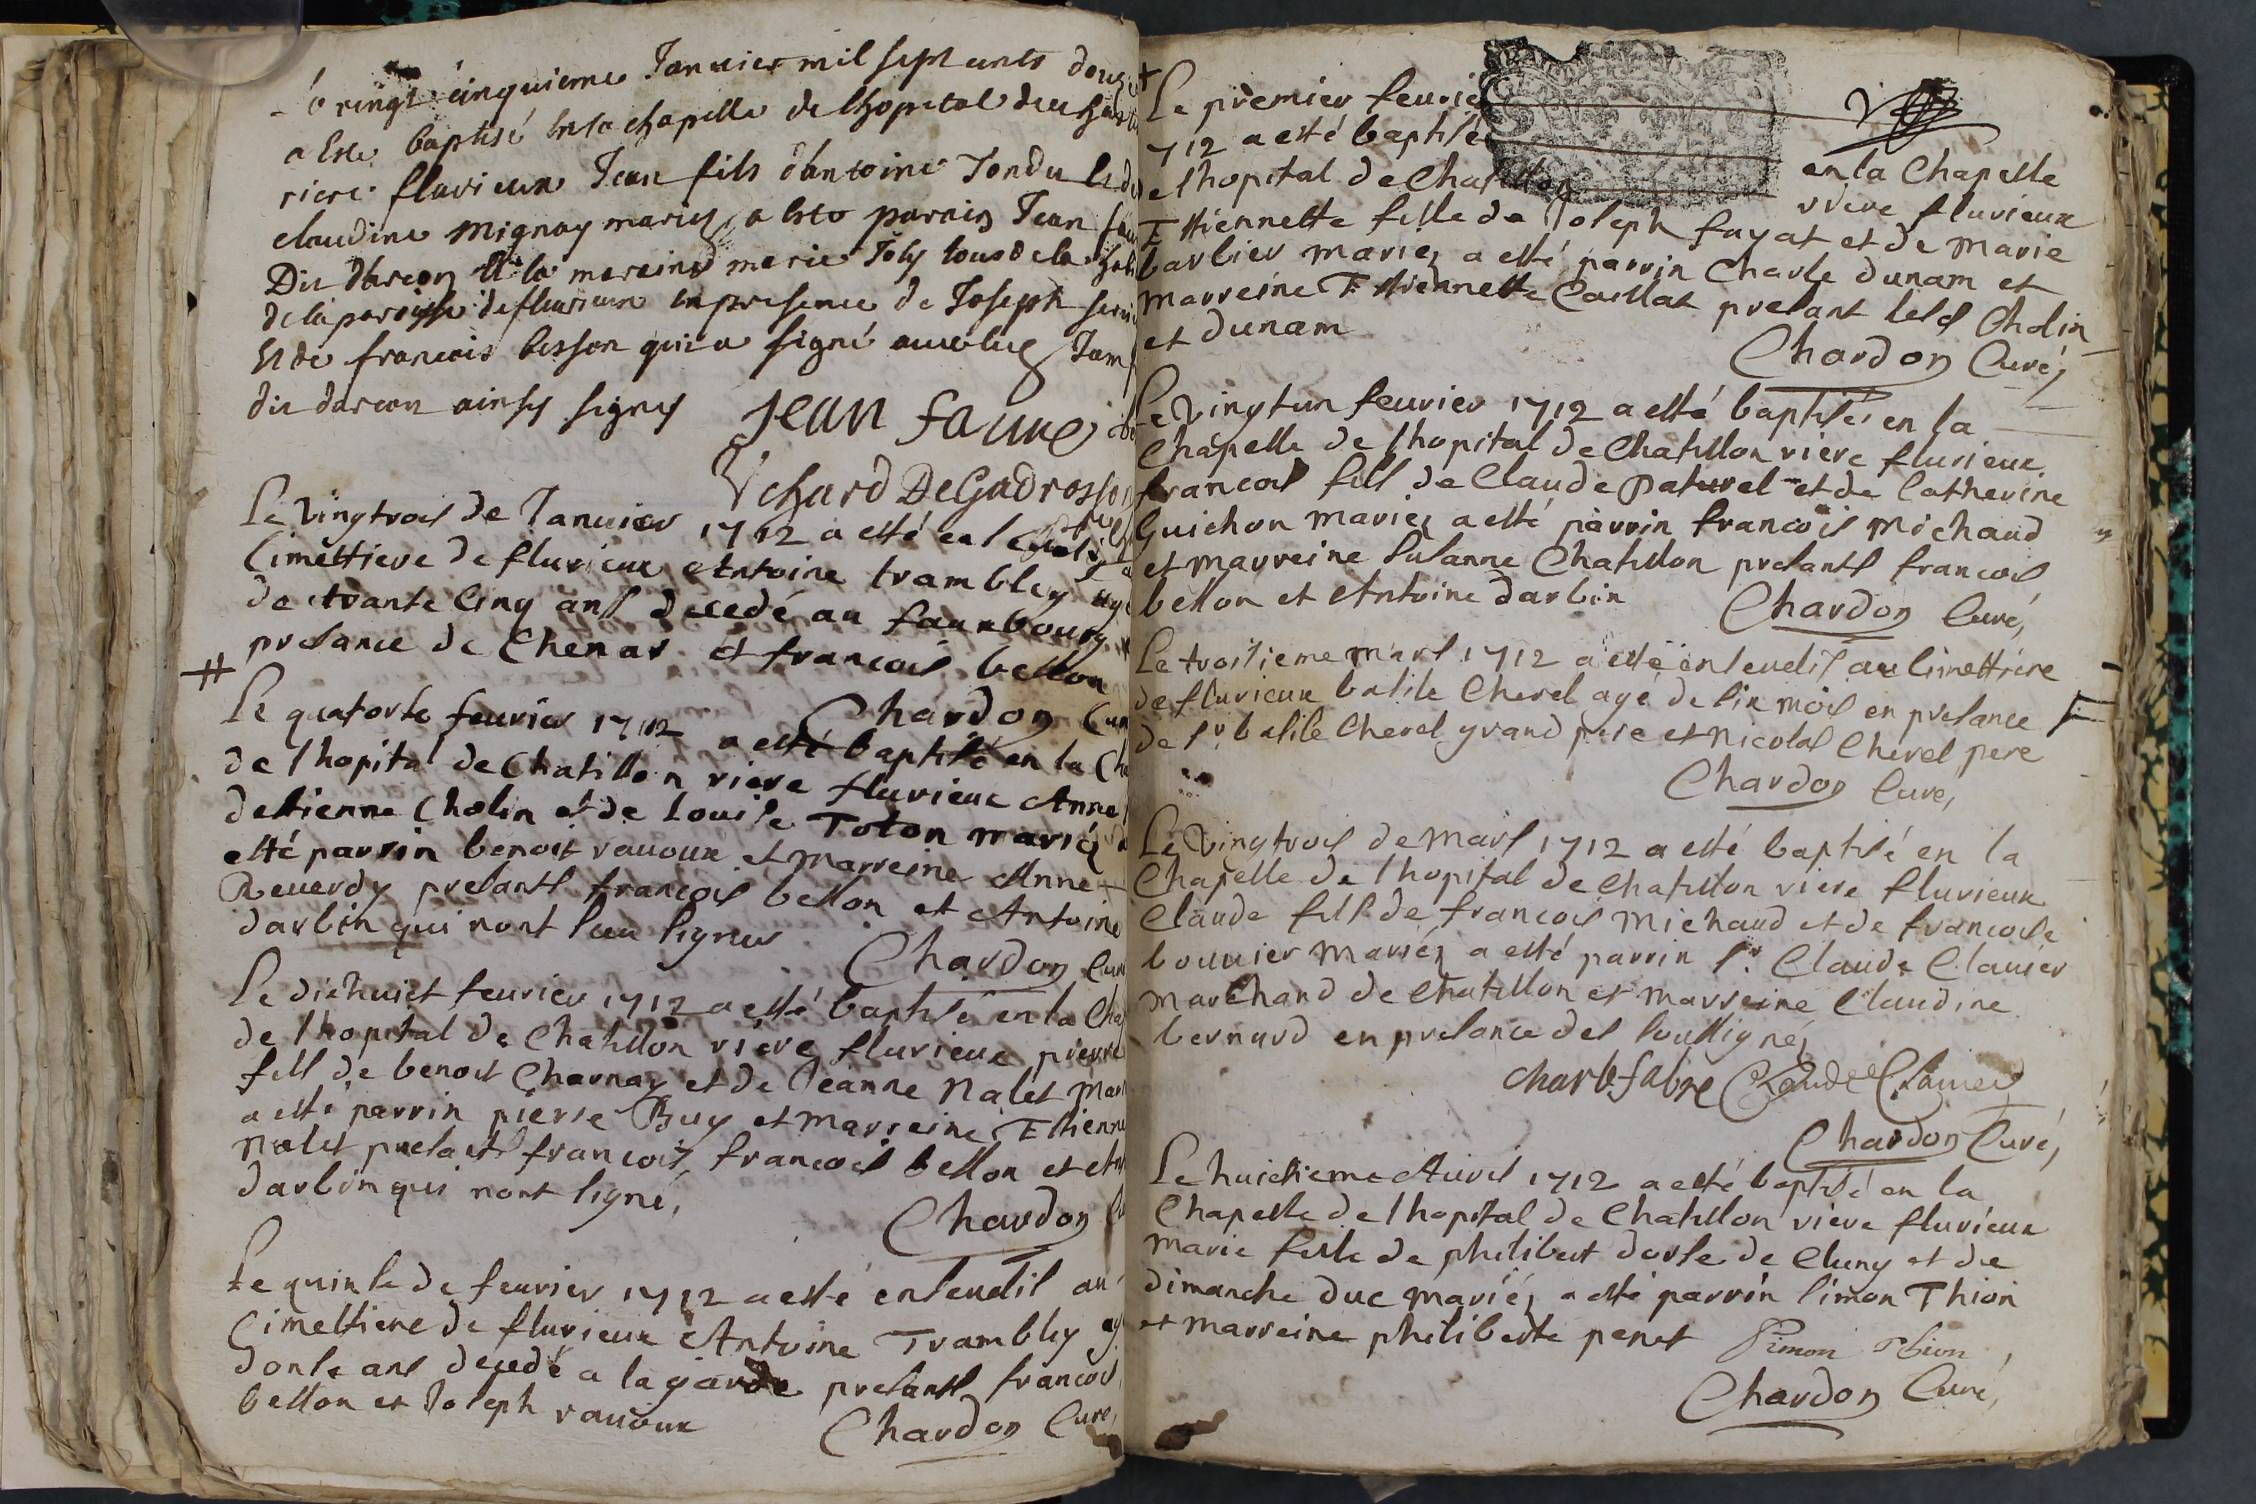 Le vingt cinquieme Januier mil sept cents douz
a Este baptisé en la chapelle de lhopital de chas
riere flurieux Jean fils dantoine Tondu et de
claudine Mignoy mariez a este parrin Jean fau
Dit darcon et la mareine marie Joly tous de la
de la paroisse de flurieux en presence de Joseph
Et de francois besson qui a signé auecluy
dit darcon ainsy signes Jean faure
Richard DeGadrosson
Le Vingtrois de Januier 1712 a esté enseueli
Cimettiere de flurieux Antoine trambley agé
de trante Cinq ans decedé au fauxbourg
presance de Chenar et francois bellon
Chardon Cur
Le quatorse feurier 1712 a esté baptisé en la Cha
de lhopital de Chatillon riere flurieux Anne
detienne Cholin et de Louise Toton mariéz a
esté parrin benoit rauoux et Marreine Anne
Reuerdy presants francois bellon et Antoine
darbin qui nont sceu signer
Chardon Cur
Le dixhuict feurier 1712 a esté baptisé en la Cha
de lhopital de Chatillon riere flurieux pierre
fils de benoit Charnay et de Jeanne Nalet Mar
a esté parrin pierre Buy et Marreine Etienne
Nalet presants francois, francois bellon et Ant
darbin qui nont signé,
Chardon Cu
Le quinse de feurier 1712 a esté enseueli au
Cimettiere de flurieux Antoine Trambley ag
donse ans decedé a la garde presants francois
bellon et Joseph rauoux
Chardon Curé,
Le premier feurier
712 a esté baptisée en la Chapelle
elhopital de Chatillon riere flurieux
Ettiennette fille de Joseph fayat et de Marie
barbier mariez a esté parrin Charle dunam et
marreine Ettiennette Caillat presant lesd Cholin
et dunam
Chardon Curé,
Le Vingtun feurier 1712 a esté baptisé en la
Chapelle de lhopital de Chatillon riere flurieux
francois fils de Claude paturel et de Catherine
Guichon mariez a esté parrin francois Michaud
et marreine Susanne Chatillon presants francois
bellon et Antoine darbin
Chardon Curé,
Le troisieme mars 1712 a esté enseueli au Cimettiere
de flurieux basile Cherel agé de six mois en presance
de sr basile Cherel grand pere et Nicolas Cherel pere
Chardon Curé,
Le Vingtrois de Mars 1712 a esté baptisé en la
Chapelle de lhopital de Chatillon riere flurieux
Claude fils de francois Michaud et de francoise
bouuier mariéz a esté parrin sr Claude Clauier
marchand de Chatillon et marreine Claudine
bernard en presance des soussignéz
charle fabre Claude Clauier
Chardon Curé,
Le huictieme Auril 1712 a esté baptisé en la
Chapelle de lhopital de Chatillon riere flurieux
Marie fille de philibert dorse de Cluny et de
dimanche Duc mariéz a esté parrin simon Thion
et marreine philiberte peret Simon Thion
Chardon Curé,